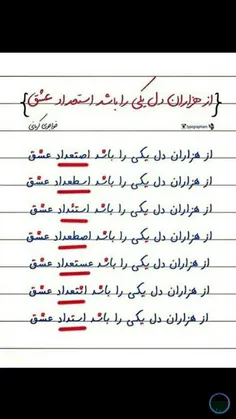 {از هزاران دل یکی را باشد استعداد عشق}
فواعدی کرونی
typographism
از هزاران دل یکی را باشد اصتعداد عشق
از هزاران دل یکی را باشد اسطعداد عشق
از هزاران دل یکی را باشد استئداد عشق
از هزاران دل یکی را باشد اصطعداد عشق
از هزاران دل یکی را باشد عستعداد عشق
از هزاران دل یکی را باشد اثتعداد عشق
از هزاران دل یکی را باشد استداد عشق